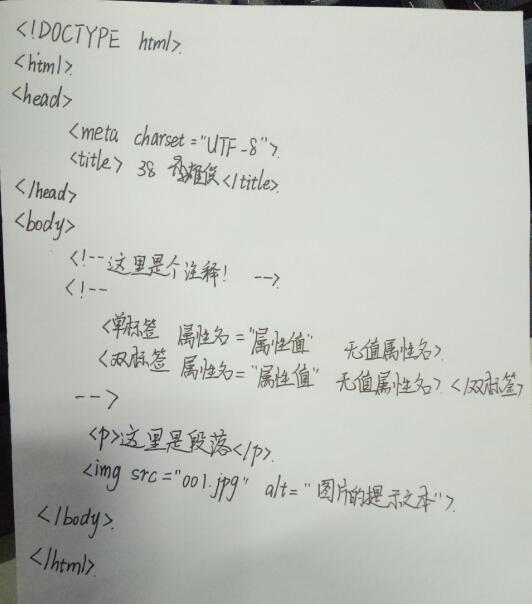 <!DOCTYPE html>
<html>
<head>
<meta charset="UTF-8">
<title> 38 雄俊</title>
</head>
<body>
<!--这里是个注释! -->
<!--
<单标签 属性名="属性值" 无值属性名>
<双标签 属性名="属性值" 无值属性名> </双标签>
-->
<p>这里是段落</p>
<img src="001.jpg" alt="图片的提示文本">
</body>
</html>